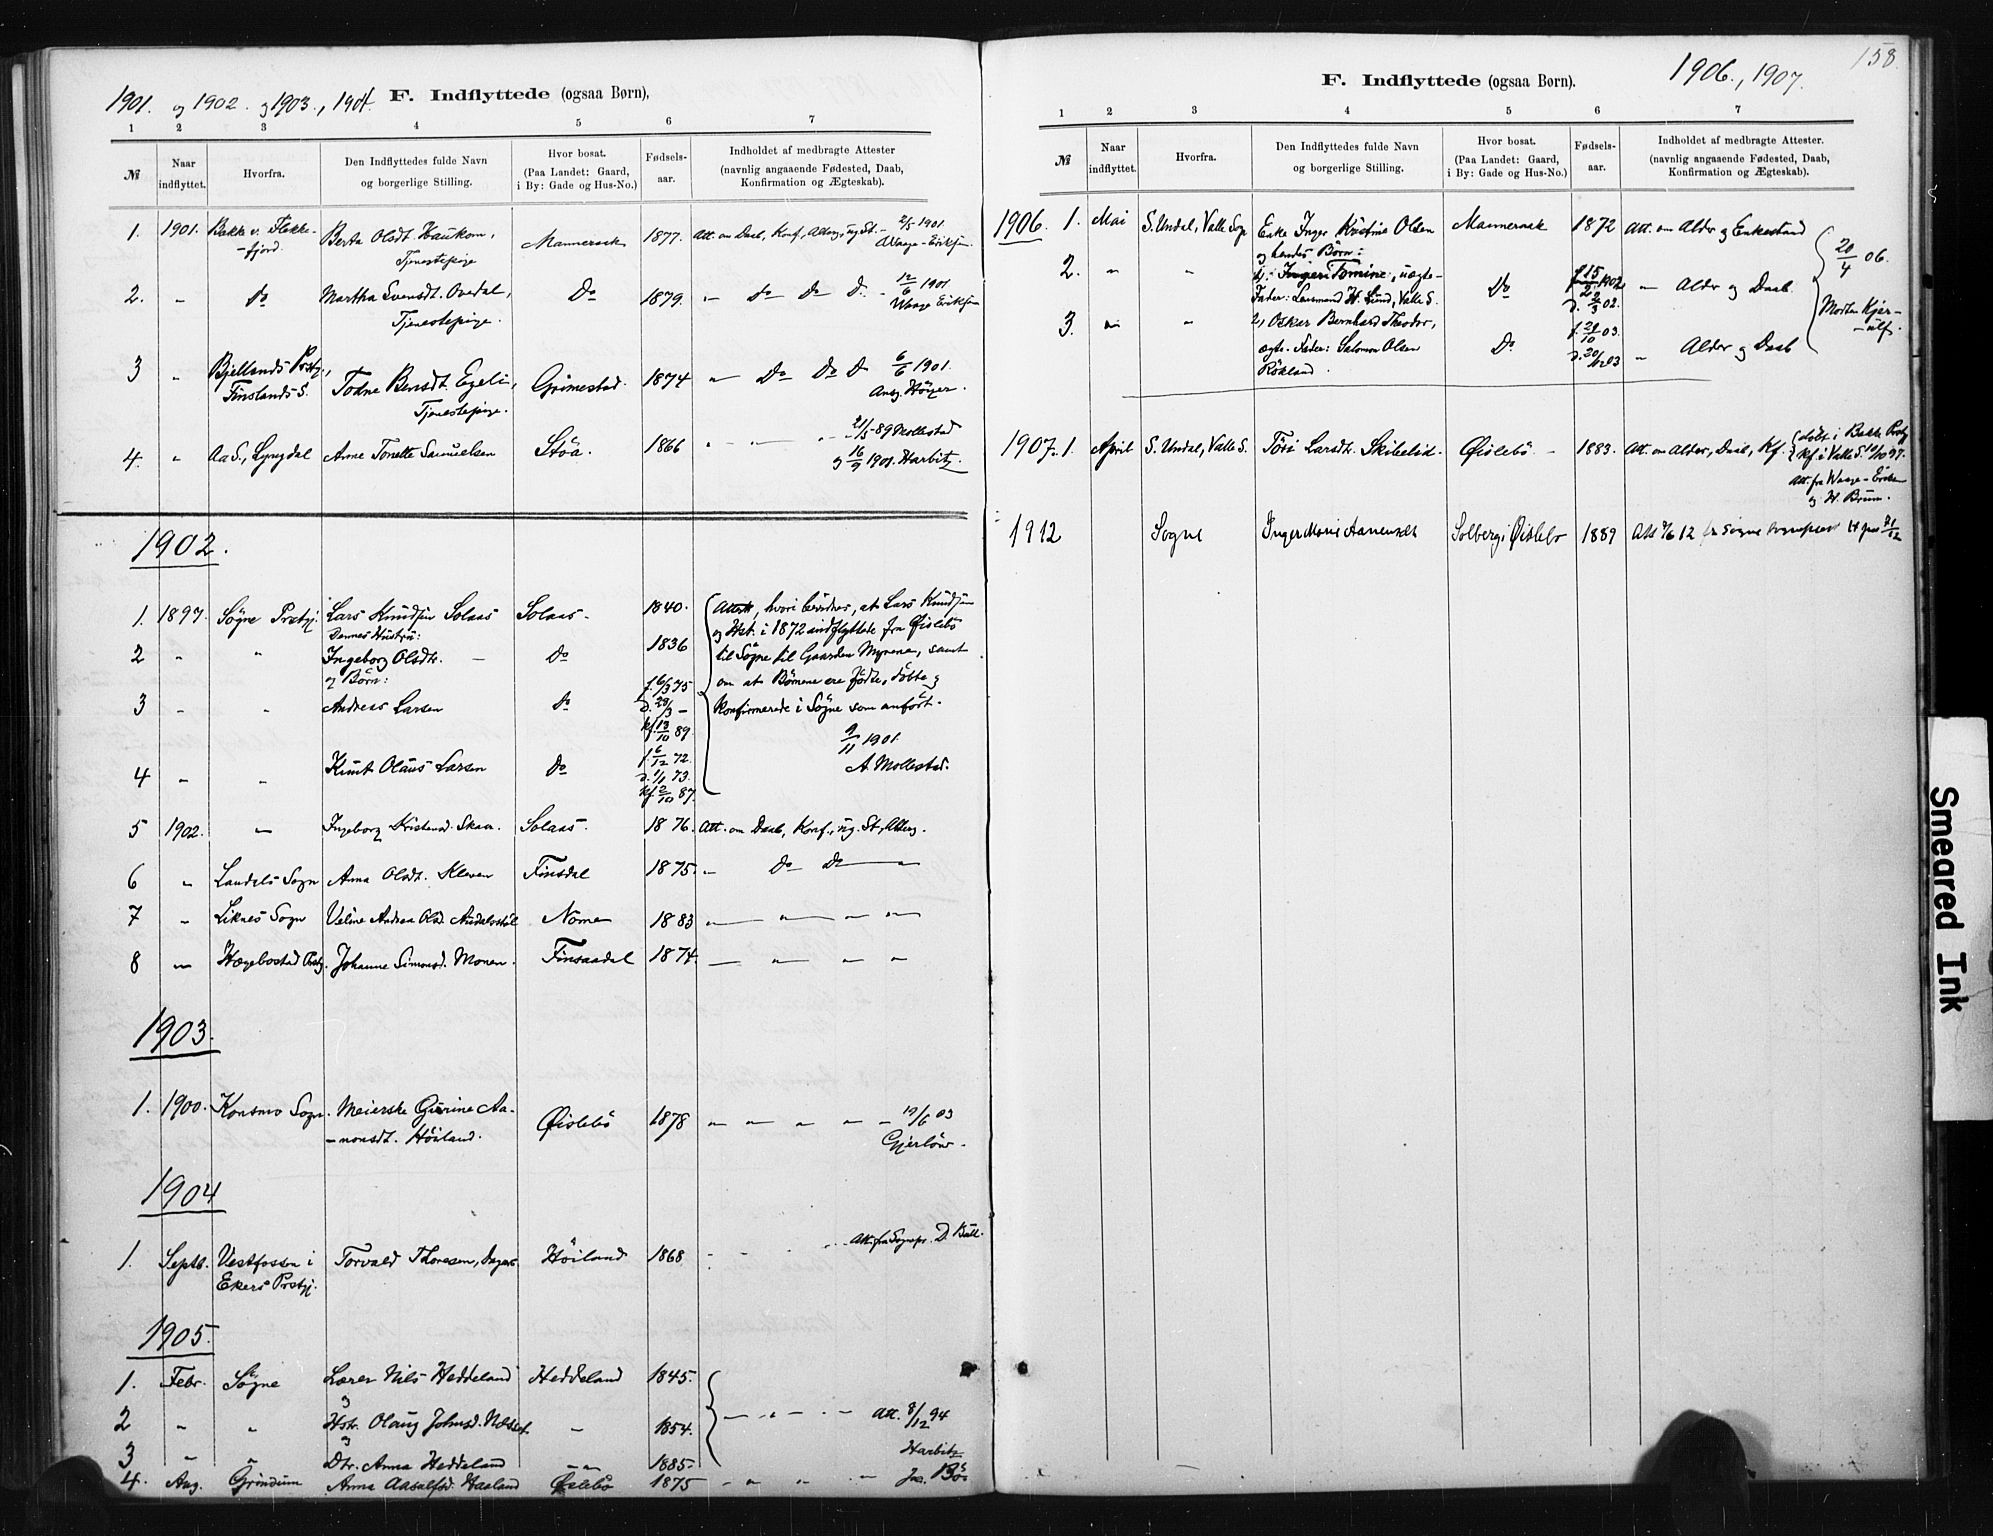 1901. og 1902. og 1903., 1904. F. Indflyttede (ogsaa Børn),
1 2 3 4 5 6 7
№ Naar indflyttet. Hvorfra. Den Indflyttedes fulde Navn og borgerlige Stilling. Hvor bosat. (Paa Landet: Gaard, i By: Gade og Hus-No.) Fødsels-aar. Indholdet af medbragte Attester (navnlig angaaende Fødested, Daab, Konfirmation og Ægteskab).
1. 1901. Bakke v. Flekke- Berta Olsdt. Haukom, Mannersak 1877. Att. om Daab, Konf., ug. St. 2/5 1901
-fjord. Tjenestepige Waage-Eriksen
2. " Do Martha Svensdt. Ovedal, Do 1879. " do Do D. 12/6 1901
Tjenestepige. Waage Eriksen
3 " Bjellands Prstgj. Todne Bersdt. Egeli, Grimestad. 1874 " Do Do D 6/6 1901.
Finslands S. Tjenestepige. Ansg. Höyer.
4. " Aa S., Lyngdal Anne Tonette Samuelsen Stöa 1866 " — " 21/5-89 Mollestad
og 16/9 1901. Harbitz.
1902.
1. 1897. Sögne Prstgj. Lars Knudsen Solaas Solaas. 1840. Attest, hvori bevidnes, at Lars Knudsen
Dennes Hustru: og Hst. i 1872 indflyttede fra Øislebö
2 " " Ingeborg Olsdtr. — Do 1836 til Sögne til Gaarden Myrene, samt
og Börn: om at Börnene ere fødte, döbte og
3 " " Andreas Larsen do f. 6/3 75 konfirmerede i Sögne som anfört.
d. 29/3 —
kf. 13/10 89. 9/11 1901.
4 " " Knut Olaus Larsen Do f. 6/12 72. A. Mollestad.
d. 1/1 73.
kf. 2/10 87.
5 1902. " Ingeborg Kristensd. Skaar Solaas. 1876. Att. om Daab, Konf., ug. St., Alterg.
6 " Laudals Sogn Anna Olsdt. Kleven Finsdal 1875. " Do Do — "
7 " Liknes Sogn Veline Andrea Olsd. Aadalsstöl Nome 1883 " " " "
8 " Hægebostad Prstgj. Johanne Simonsd. Monen. Finsaadal 1874. — " " "
1903.
1. 1900. Konsmo Sogn. Meierske Gurine Aa- Øislebö 1878 " " " " " 19/6 03
-nonsdt. Höiland. Gjerlöw.
1904
1. Septb. Vestfossen i Torvald Thoresen, Höiland 1868 Att. fra Sognepr. D. Bull.
Ekers Prstgj.
1905.
1. Febr. Sögne Lærer Nils Heddeland Heddeland 1845.
og
2 " " Hstr. Olaug Johnsd. — 1854. — " — " — Att. 8/12 94
og Harbitz
3 " " Dtr. Anna Heddeland " " 1885.
4. Aug. Grindum Anna Aasulfsd. Haaland Øislebö 1875 " " " " Jas. Bö
158.
F. Indflyttede (ogsaa Børn). 1906., 1907.
1 2 3 4 5 6 7
№ Naar indflyttet. Hvorfra. Den Indflyttedes fulde Navn og borgerlige Stilling. Hvor bosat. (Paa Landet: Gaard, i By: Gade og Hus-No.) Fødsels-aar. Indholdet af medbragte Attester. (navnlig angaaende Fødested, Daab, Konfirmation og Ægteskab).
1906. 1. Mai S. Undal, Valle Sogn Enke Inger Kristine Olsen Mannersak 1872 Att. om Alder og Enkestand
og hendes Børn: 20/4 06.
2. " " 1, Tomine, uægte- Do f. 15/2 1902 " Alder og Daab
Fader: Lensmand H. Lund, Valle S. d. 2/3 02. Morten Kjer-
3. " " 2, Oskar Bernhard Theodor, f. 20/10 03. -ulf.
ægte. Fader: Salomon Olsen Do d. 20/12 03 " Alder og Daab
Rökland.
1907. 1. April S. Undal, Valle S. Töri Larsdtr. Skibelid. Øislebö — 1883. Att. om Alder, Daab, Kf. döbt i Bakke Prstgj
kf. i Valle S. 10/10 97.
Att. fra Waage-Eriksen
og H. Bruun.
1912 Sogne Inger Marie Hanensdt Solberg i Øislebo 1889 Att 12 fra Sogne sogneprest